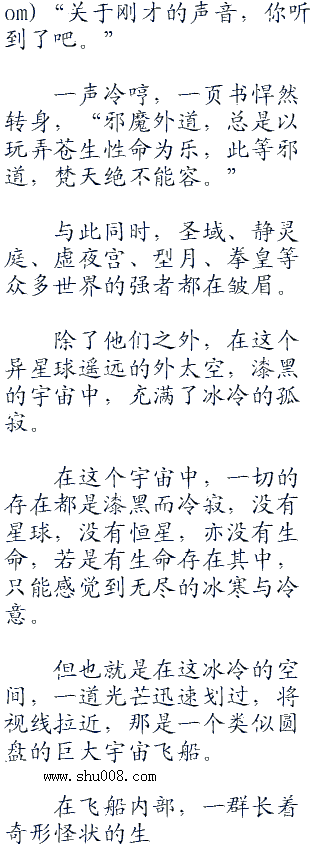 om) “关于刚才的声音，你听
到了吧。”
一声冷哼，一页书悍然
转身，“邪魔外道，总是以
玩弄苍生性命为乐，此等邪
道，梵天绝不能容。”
与此同时，圣域、静灵
庭、虚夜宫、型月、拳皇等
众多世界的强者都在皱眉。
除了他们之外，在这个
异星球遥远的外太空，漆黑
的宇宙中，充满了冰冷的孤
寂。
在这个宇宙中，一切的
存在都是漆黑而冷寂，没有
星球，没有恒星，亦没有生
命，若是有生命存在其中，
只能感觉到无尽的冰寒与冷
意。
但也就是在这冰冷的空
间，一道光芒迅速划过，将
视线拉近，那是一个类似圆
盘的巨大宇宙飞船。
www.shu008.com
在飞船内部，一群长着
奇形怪状的生